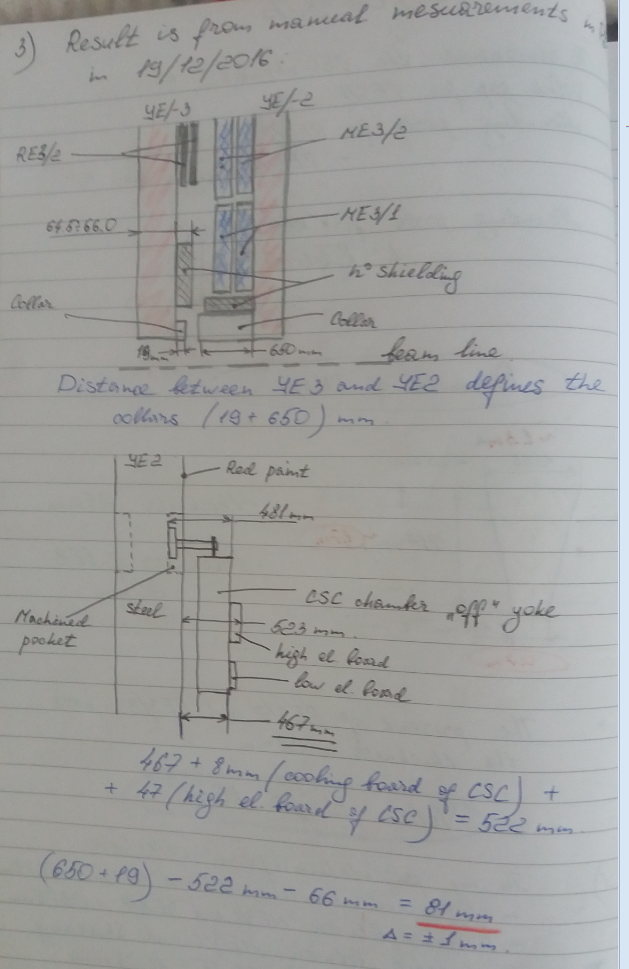 3) Result is from manual mesuarements
in 19/12/2016.
YE/-3 YE/-2
RE3/2 ME3/2
ME3/1
n° shielding
Collar Collar
19mm 650mm beam line
Distance between YE3 and YE2 defines the
collars (19 + 650) mm
YE2 Red paint
481mm
CSC chamber „off" yoke
Machined Steel 523 mm.
pocket high el board
low el. board
467mm
467 + 8mm (cooling board of CSC) +
+ 47 (high el. board of CSC) = 522 mm.
(650+19) - 522 mm - 66 mm = 81 mm
Δ = ± 1 mm.